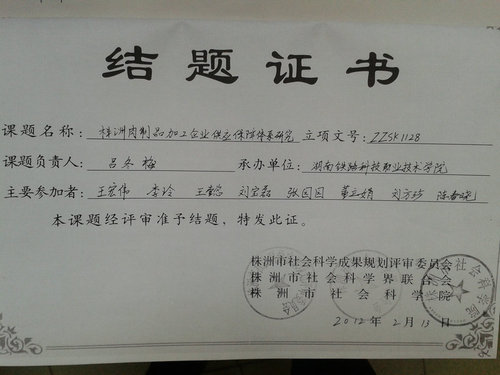 结题证书
课题名称：株洲肉制品加工企业供应保障体系研究 立项文号：ZZSK1128
课题负责人：吕冬梅 承办单位：湖南铁路科技职业技术学院
主要参加者：王宏伟 李玲 刘宝磊 张园园 董三娟 刘方玲 陈春晓
本课题经评审准予结题，特发此证。
株洲市社会科学成果规划评审委员会
株洲市社会科学界联合会
株洲市社会科学院
2012年2月13日